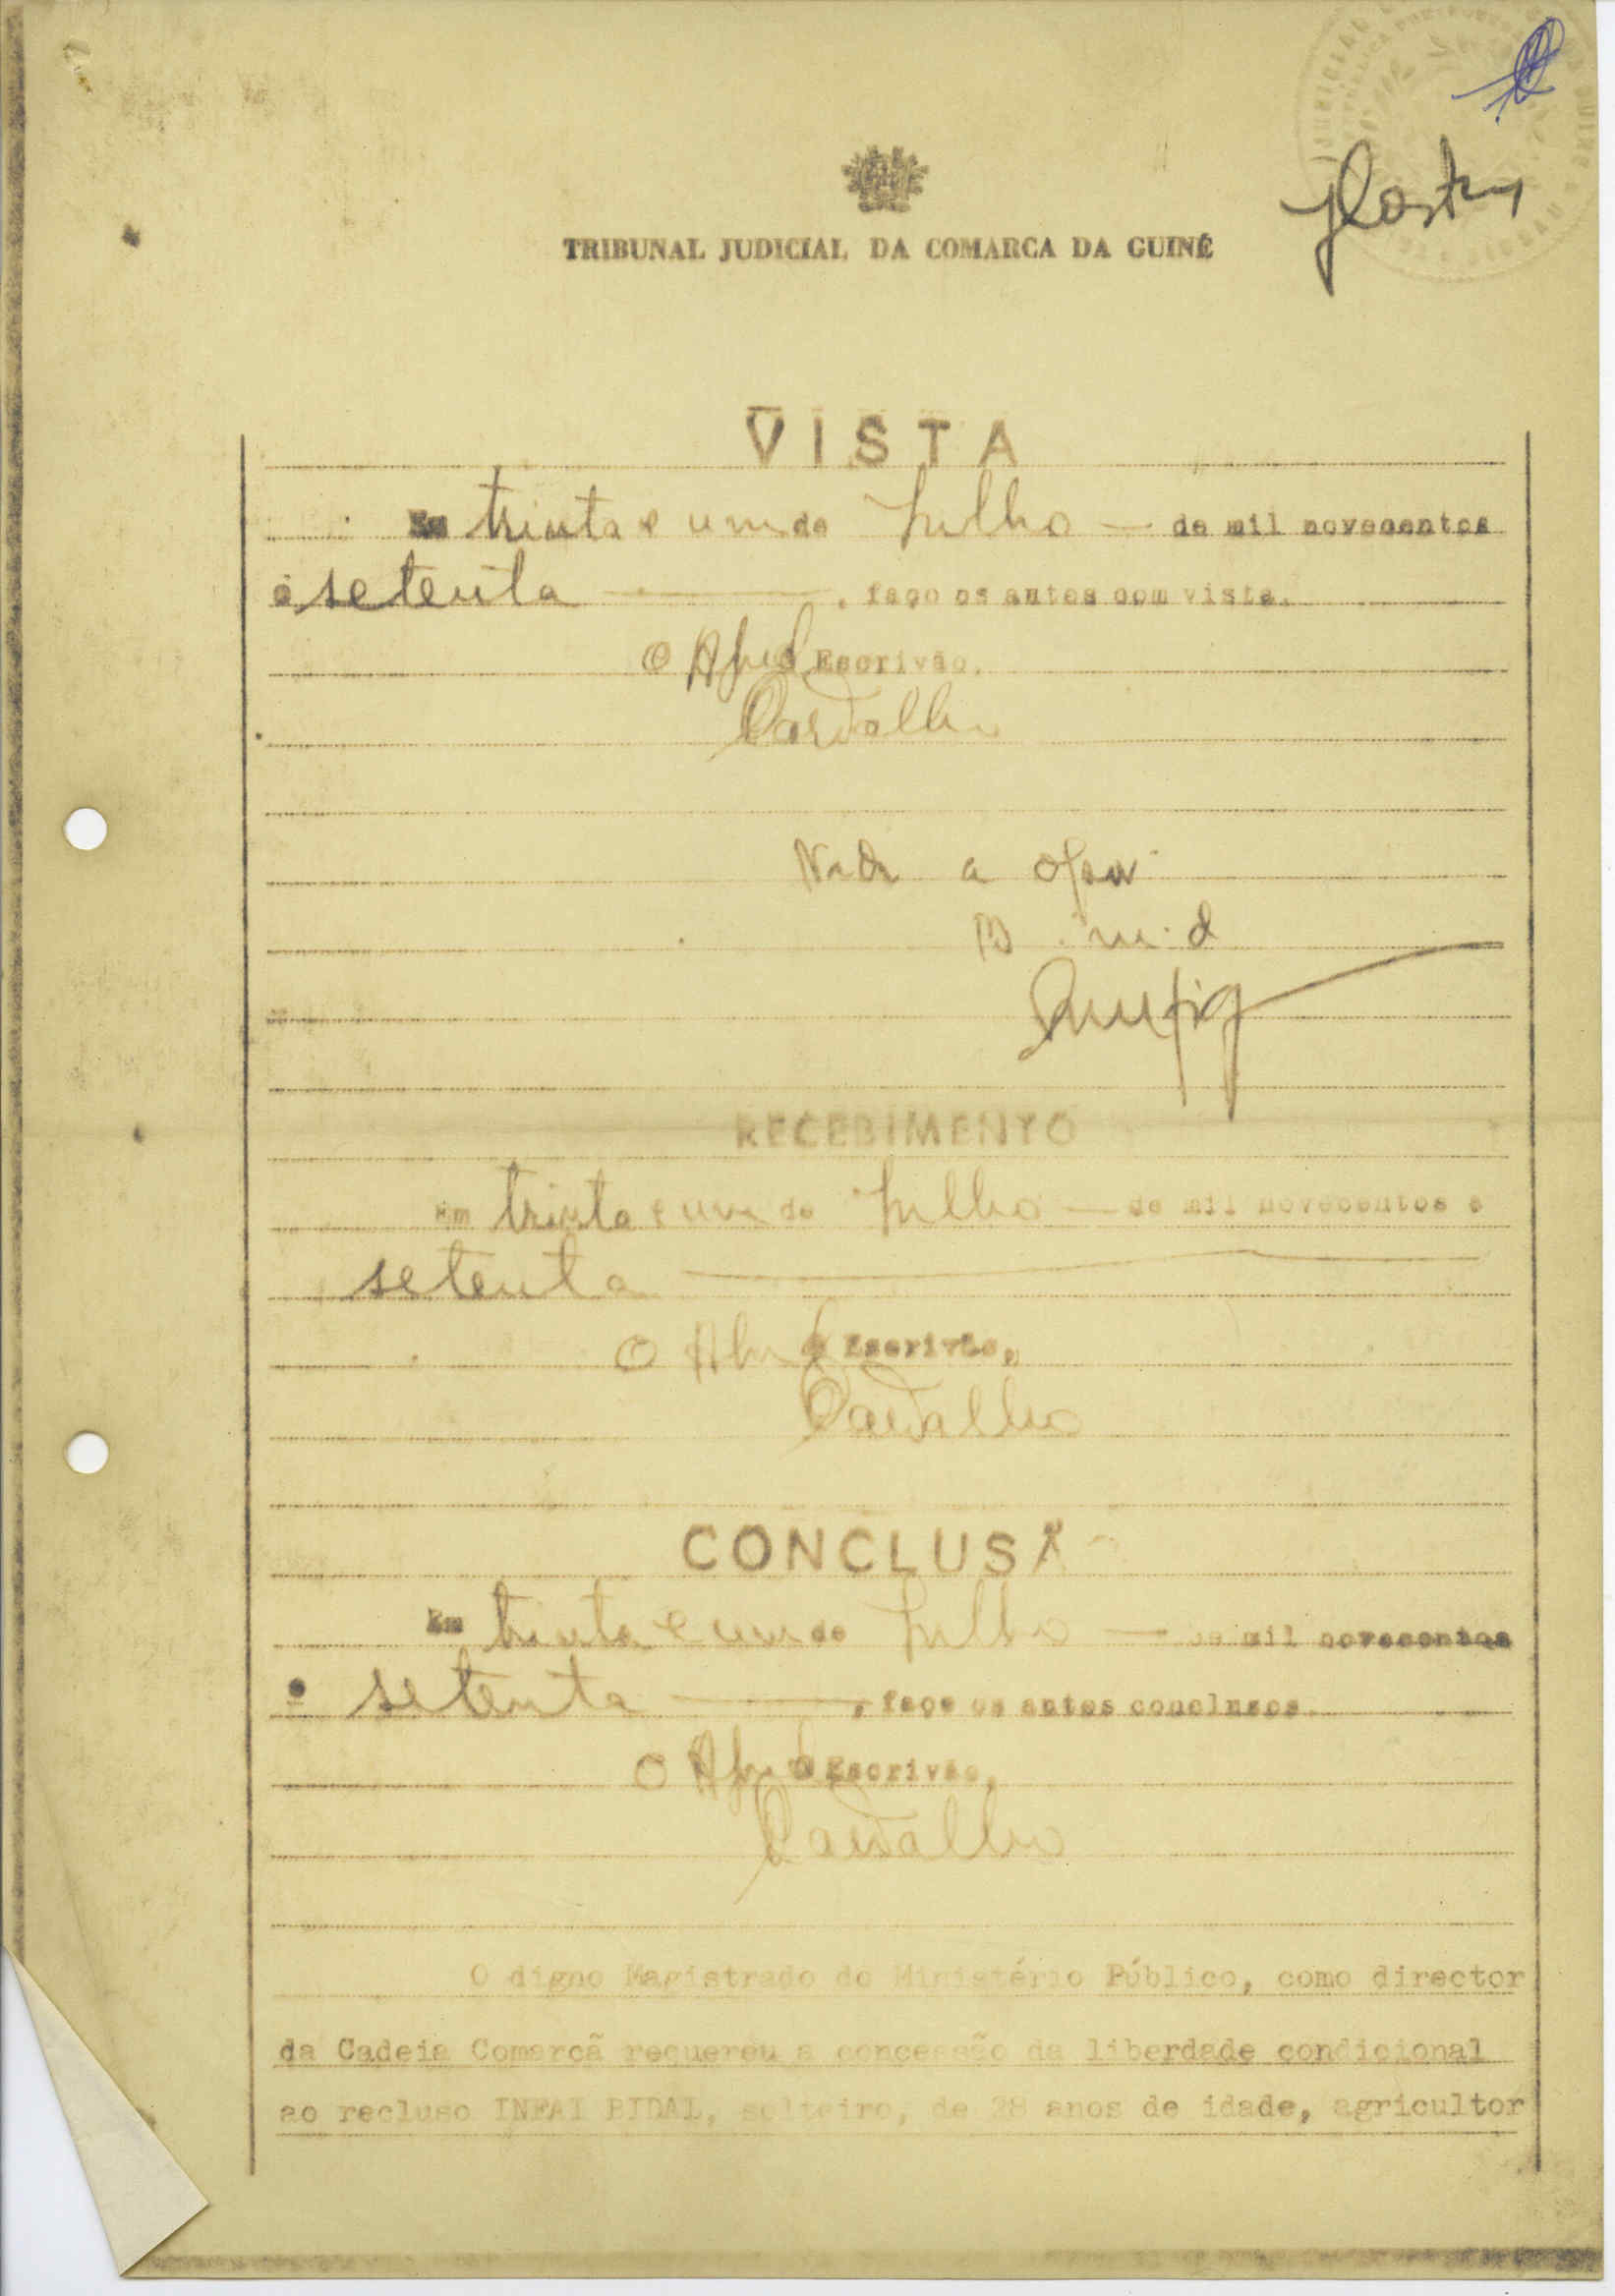 TRIBUNAL JUDICIAL DA COMARCA DA GUINÉ
VISTA
Em trinta e um de Julho — de mil novecentos
e setenta —, faço os autos com vista.
O Ajud. Escrivão,
Carvalho
Nada a opor
RECEBIMENTO
Em trinta e um de Julho — de mil novecentos e
setenta —
O Ajud. Escrivão,
Carvalho
CONCLUSÃ
Em trinta e um de Julho — de mil novecentos
e setenta —, faço os autos conclusos.
O Ajud. Escrivão,
Carvalho
O digno Magistrado do Ministério Público, como director
da Cadeia Comarcã requereu a concessão da liberdade condicional
ao recluso INFAI BIDAL, solteiro, de 28 anos de idade, agricultor